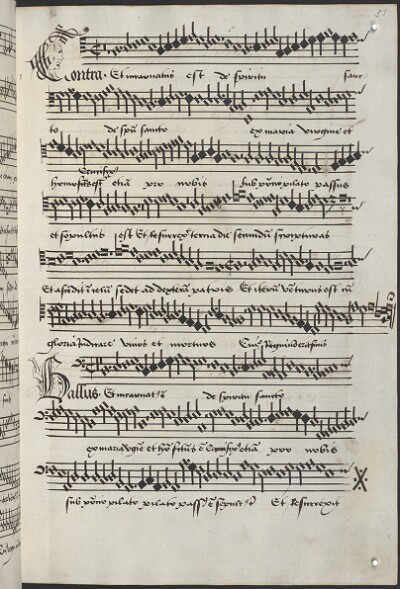 51
Contra Et incarnatus est de spiritu sanc
to de spū sancto ex maria virgine et
homo factus est etiā pro nobis sub pōtio pilato passus
Crucifixꝰ
et sepultus est Et Resurrexit tercia die secundū scripturas
Et ascēdit ī celū sedet ad dexterā patris Et iterū vēturus est cū
gloria Judicare vivos et mortuos Cuiꝰ Regni nō erit finis
Bassus Et incarnatꝰ ē de spiritu sancto
ex maria v̄gīe et hō factus ē Crucifixꝰ etiā pro nobis
sub pōtio pilato pilato passꝰ ē sepultꝰ Et Resurrexit